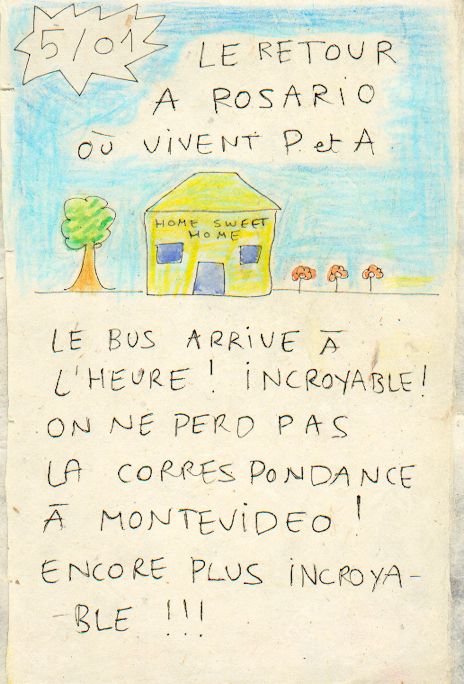 5/01
LE RETOUR
A ROSARIO
OÙ VIVENT P et A
HOME SWEET
HOME
LE BUS ARRIVE À
L'HEURE ! INCROYABLE !
ON NE PERD PAS
LA CORRESPONDANCE
À MONTEVIDEO !
ENCORE PLUS INCROYA-
-BLE !!!